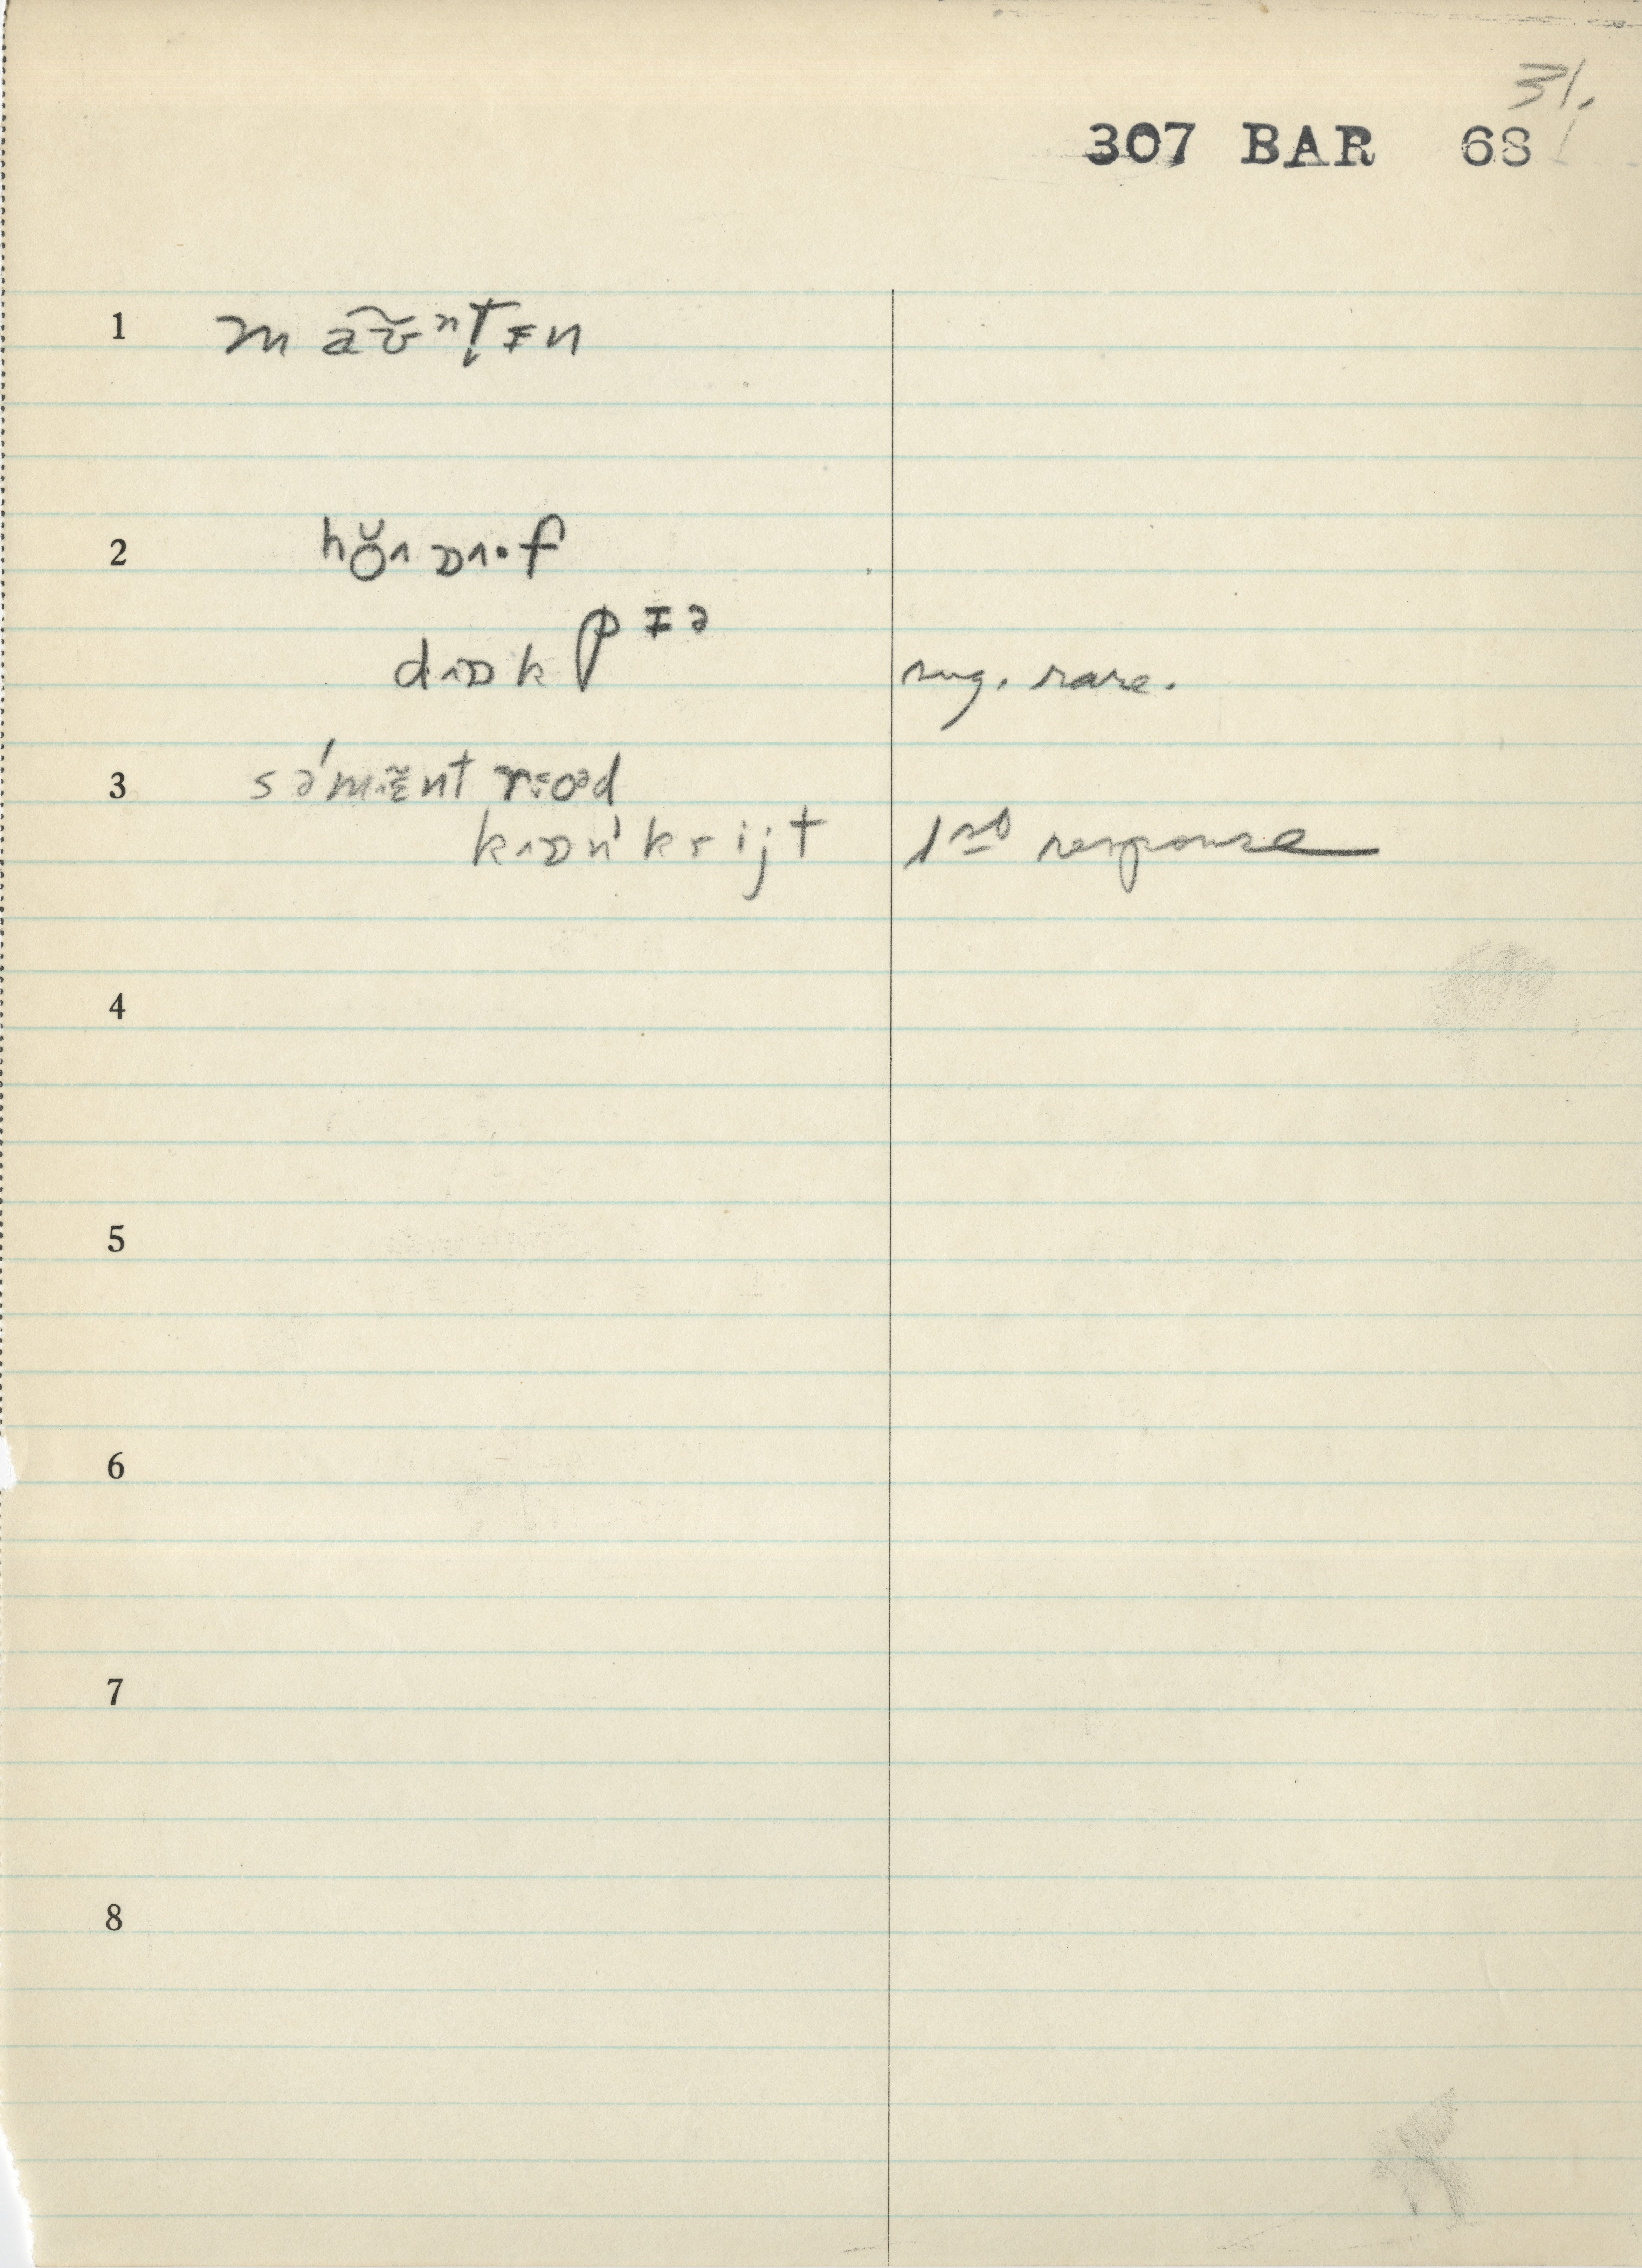 31.
307 BAR 68
1 m ã ʊ̃ ⁿt̬ ɪ n
2 hŏ˄ ɒ˄·f
d˄ɒ k pɪə
sug. rare.
3 sə́mɛ̃nt roəd
k˄ɒn'krijt 1st response
4
5
6
7
8